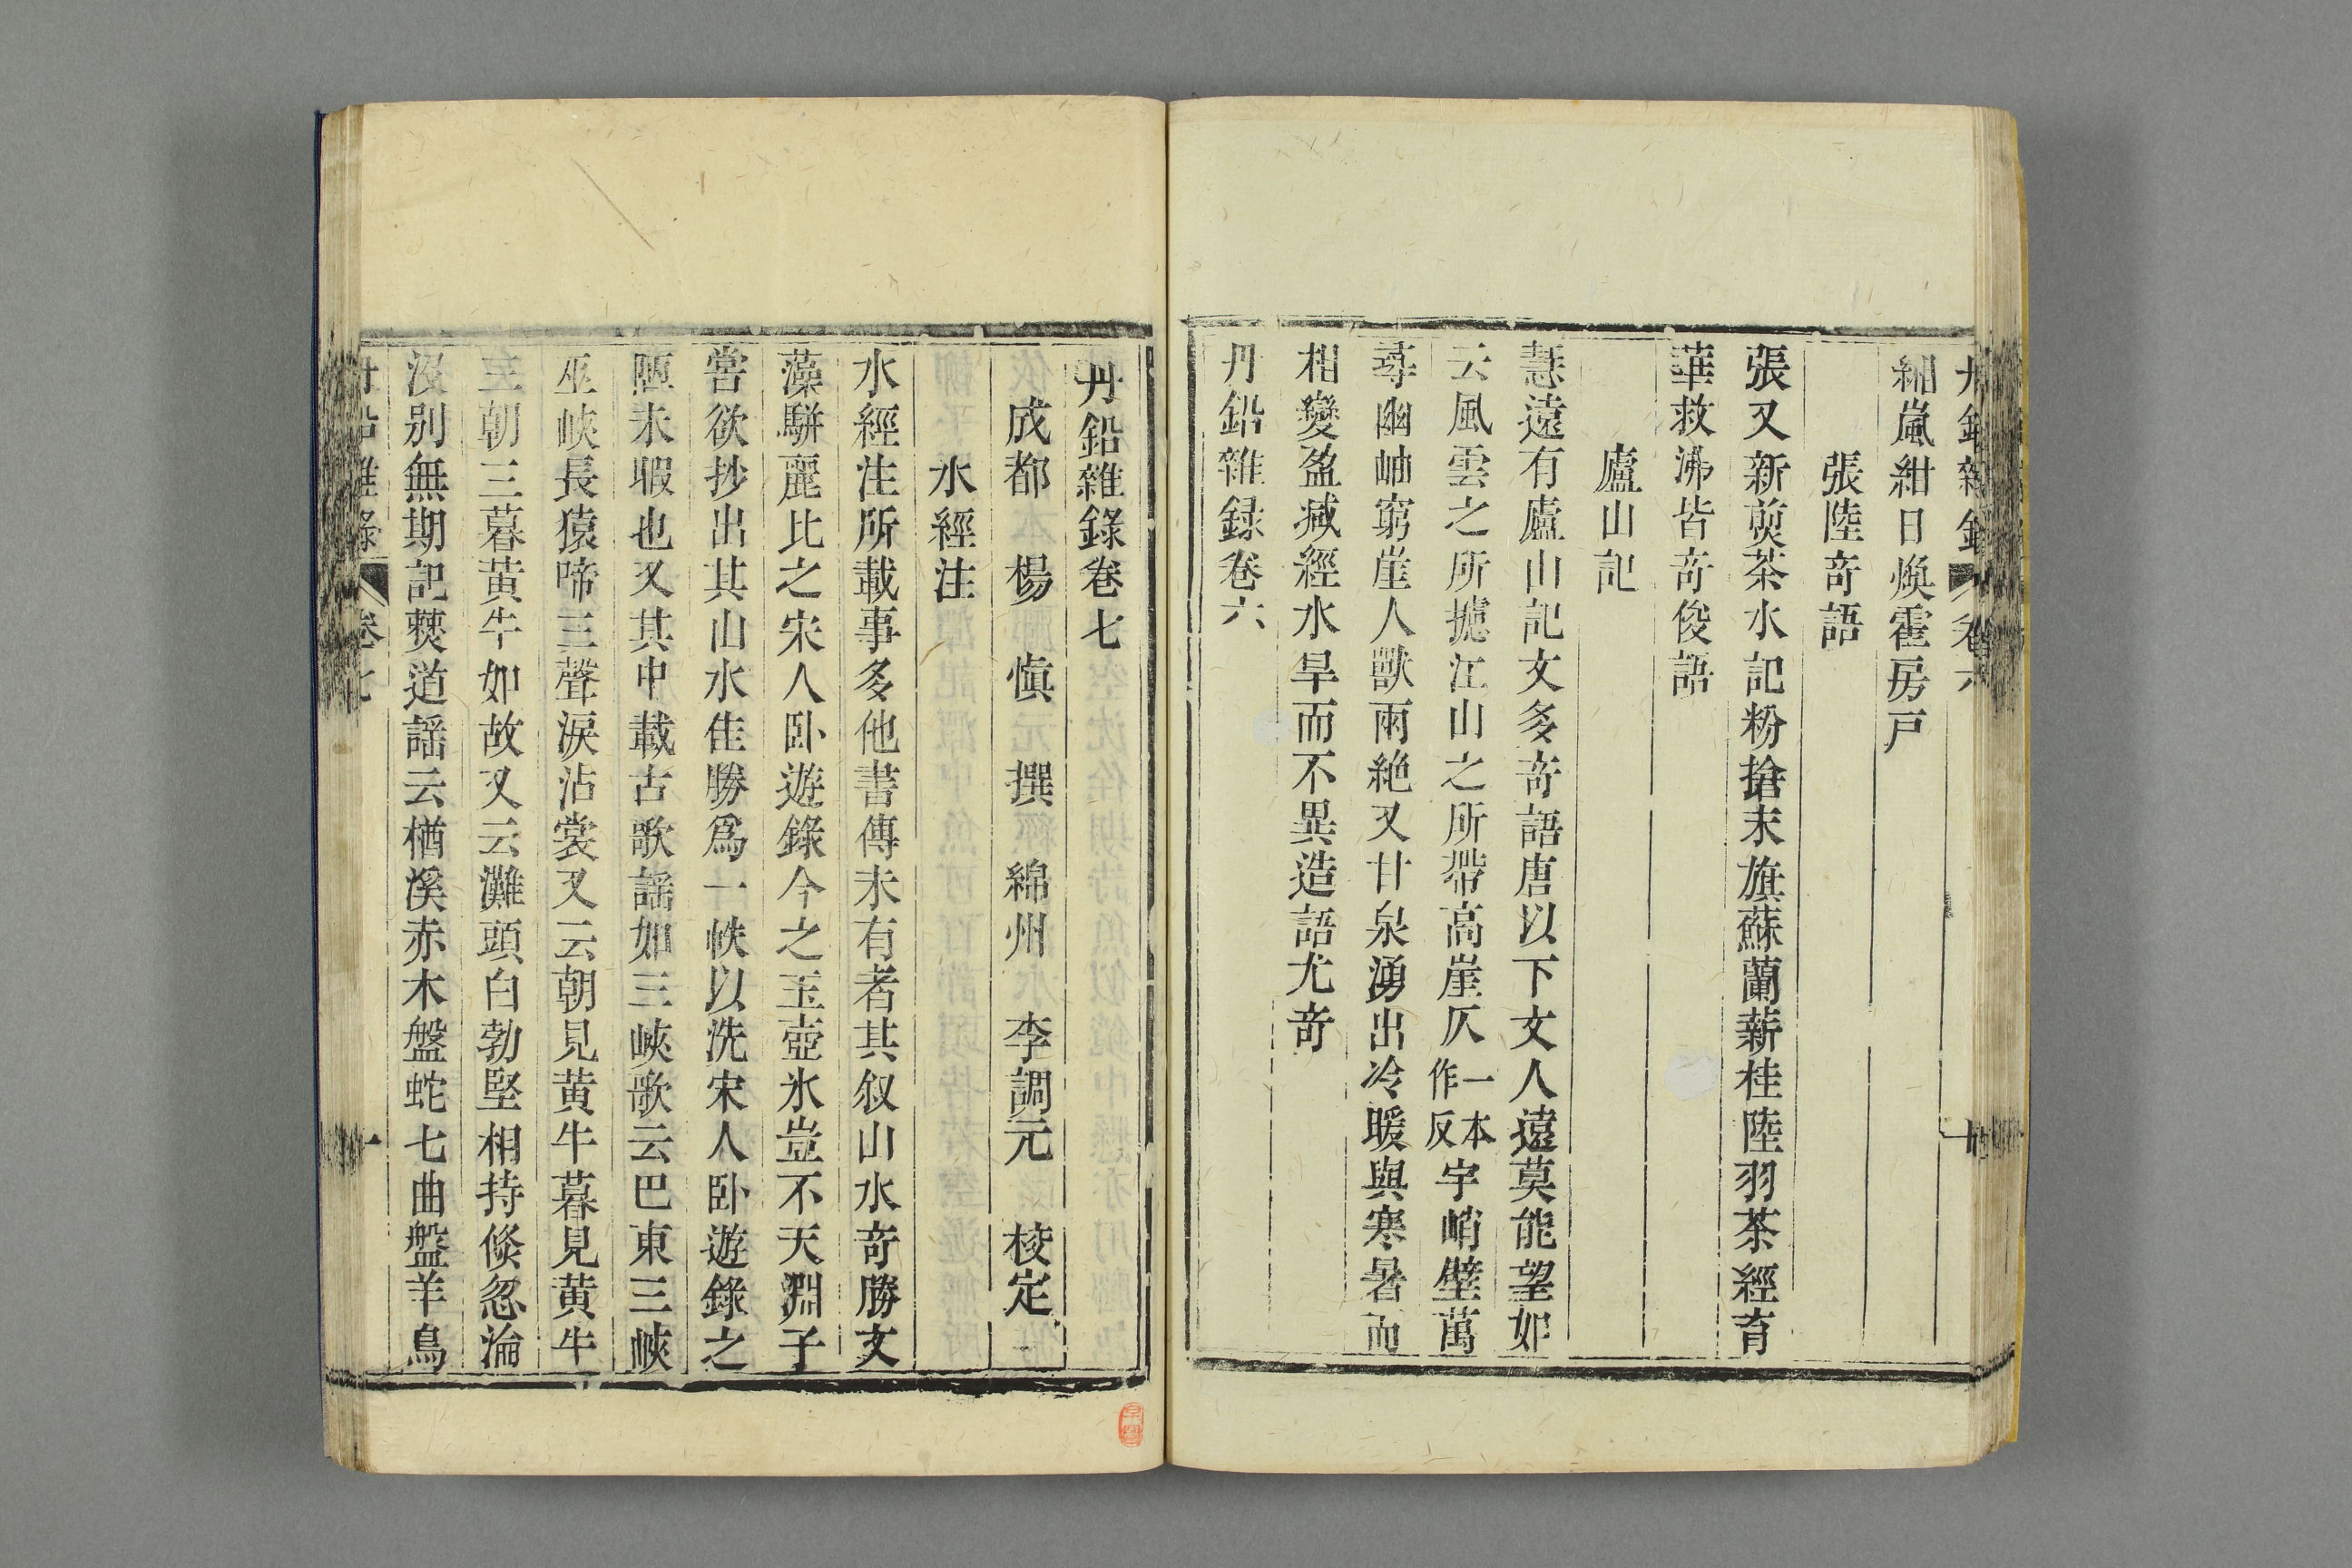 丹鉛雜錄 卷六
緗嵐紺日煥霍房戸
張陸奇語
張又新煎茶水記粉搶末旗蘇蘭薪桂陸羽茶經育
華救沸皆奇俊語
廬山記
慧遠有廬山記文多奇語唐以下文人遠莫能望如
云風雲之所攄江山之所帶高崖仄一本作反宇峭壁萬
尋幽岫窮崖人獸兩絶又甘泉湧出冷暖與寒暑而
相變盈減經水旱而不異造語尤奇
丹鉛雜録卷六
丹鉛雜錄卷七
成都 楊慎撰 綿州 李調元 校定
水經注
水經注所載事多他書傳未有者其叙山水奇勝文
藻騈麗比之宋人卧遊錄今之玉壺氷豈不天淵子
嘗欲抄出其山水佳勝爲一帙以洗宋人卧遊錄之
陋未暇也又其中載古歌謡如三峽歌云巴東三峽
巫峽長猿啼三聲淚沾裳又云朝見黄牛暮見黄牛
三朝三暮黄牛如故又云灘頭白勃堅相持倐忽淪
沒别無期記僰道謡云楢溪赤木盤蛇七曲盤羊烏
丹鉛雜錄 卷七 一